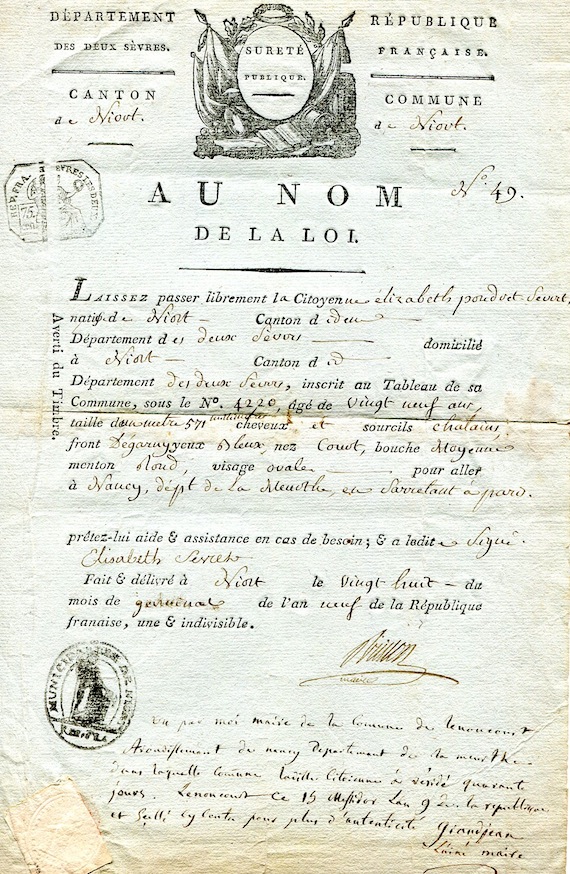 DÉPARTEMENT
DES DEUX SÈVRES.
CANTON
de Niort.
SURETÉ
PUBLIQUE.
RÉPUBLIQUE
FRANÇAISE.
COMMUNE
de Niort.
AU NOM
DE LA LOI.
No. 49.
Averti du Timbre.
LAISSEZ passer librement la Citoyenne élizabeth
natif de Niort Canton d
Département des deux Sèvres domicilié
à Niort Canton d
Département des deux Sèvres, inscrit au Tableau de sa
Commune, sous le No. 4220, âgé de vingt neuf ans,
taille d un metre 571 cheveux et sourcils chatains
front Dégarny, yeux Bleux, nez Court, bouche Moyenne
menton Rond, visage ovale pour aller
à Nancy, dépt. de la Meurthe, en Sarretant à paris.
prêtez-lui aide & assistance en cas de besoin; & a ladite Signé.
Elisabeth
Fait & délivré à Niort le vingt huit du
mois de germinal de l'an neuf de la République
franaise, une & indivisible.
maire
MUNICIPALITÉ DE
Vu par moi maire de la Commune de lenoncourt
Arondissement de nancy Département de la meurthe
dans laquelle commune ladite Citoienne a résidé quarante
jours. Lenoncourt Ce 15 Messidor L'an 9 de la republique
et pour plus d'autenticité Grandjean
maire